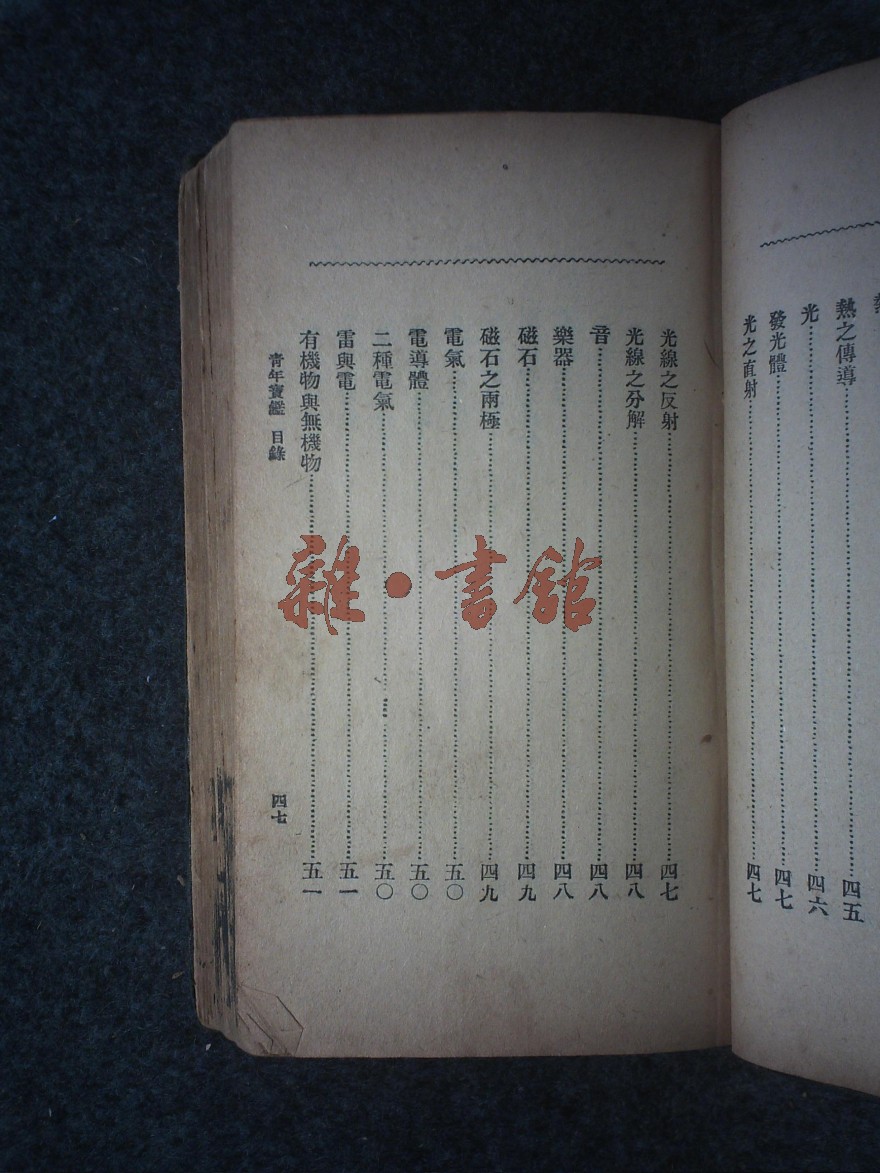 熱之傳導…………四五
光…………四六
發光體…………四七
光之直射…………四七
光線之反射…………四七
光線之分解…………四八
音…………四八
樂器…………四八
磁石…………四九
磁石之兩極…………四九
電氣…………五〇
電導體…………五〇
二種電氣…………五〇
雷與電…………五一
有機物與無機物…………五一
青年寶鑑 目錄 四七
雜·書館